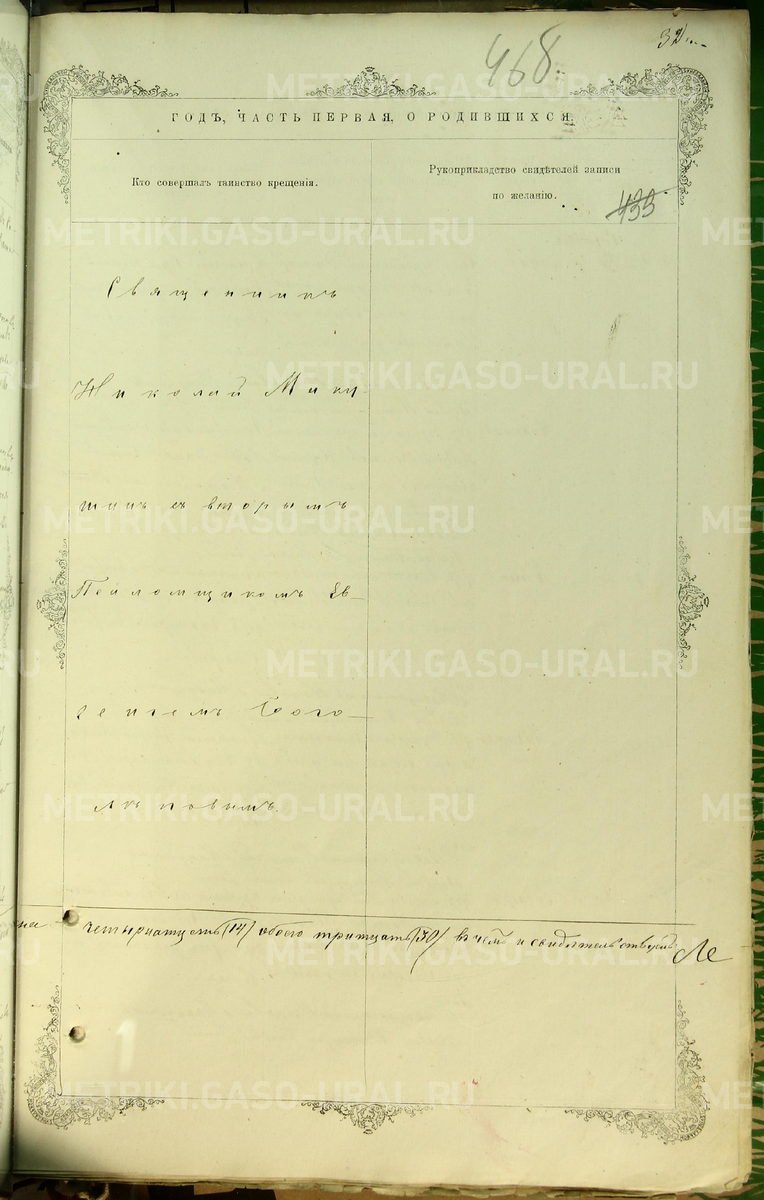 468
ГОДЪ, ЧАСТЬ ПЕРВАЯ, О РОДИВШИХСЯ.
Кто совершалъ таинство крещенія.
Рукоприкладство свидѣтелей записи
по желанію.
433
Священникъ
Николай Мики
шинъ съ вторымъ
Псаломщикомъ Ев
геніемъ Бого
любовымъ.
на четырнатцать (14) обоего тритцать (30) въ чемъ и свидѣтельствуемъ
METRIKI.GASO-URAL.RU